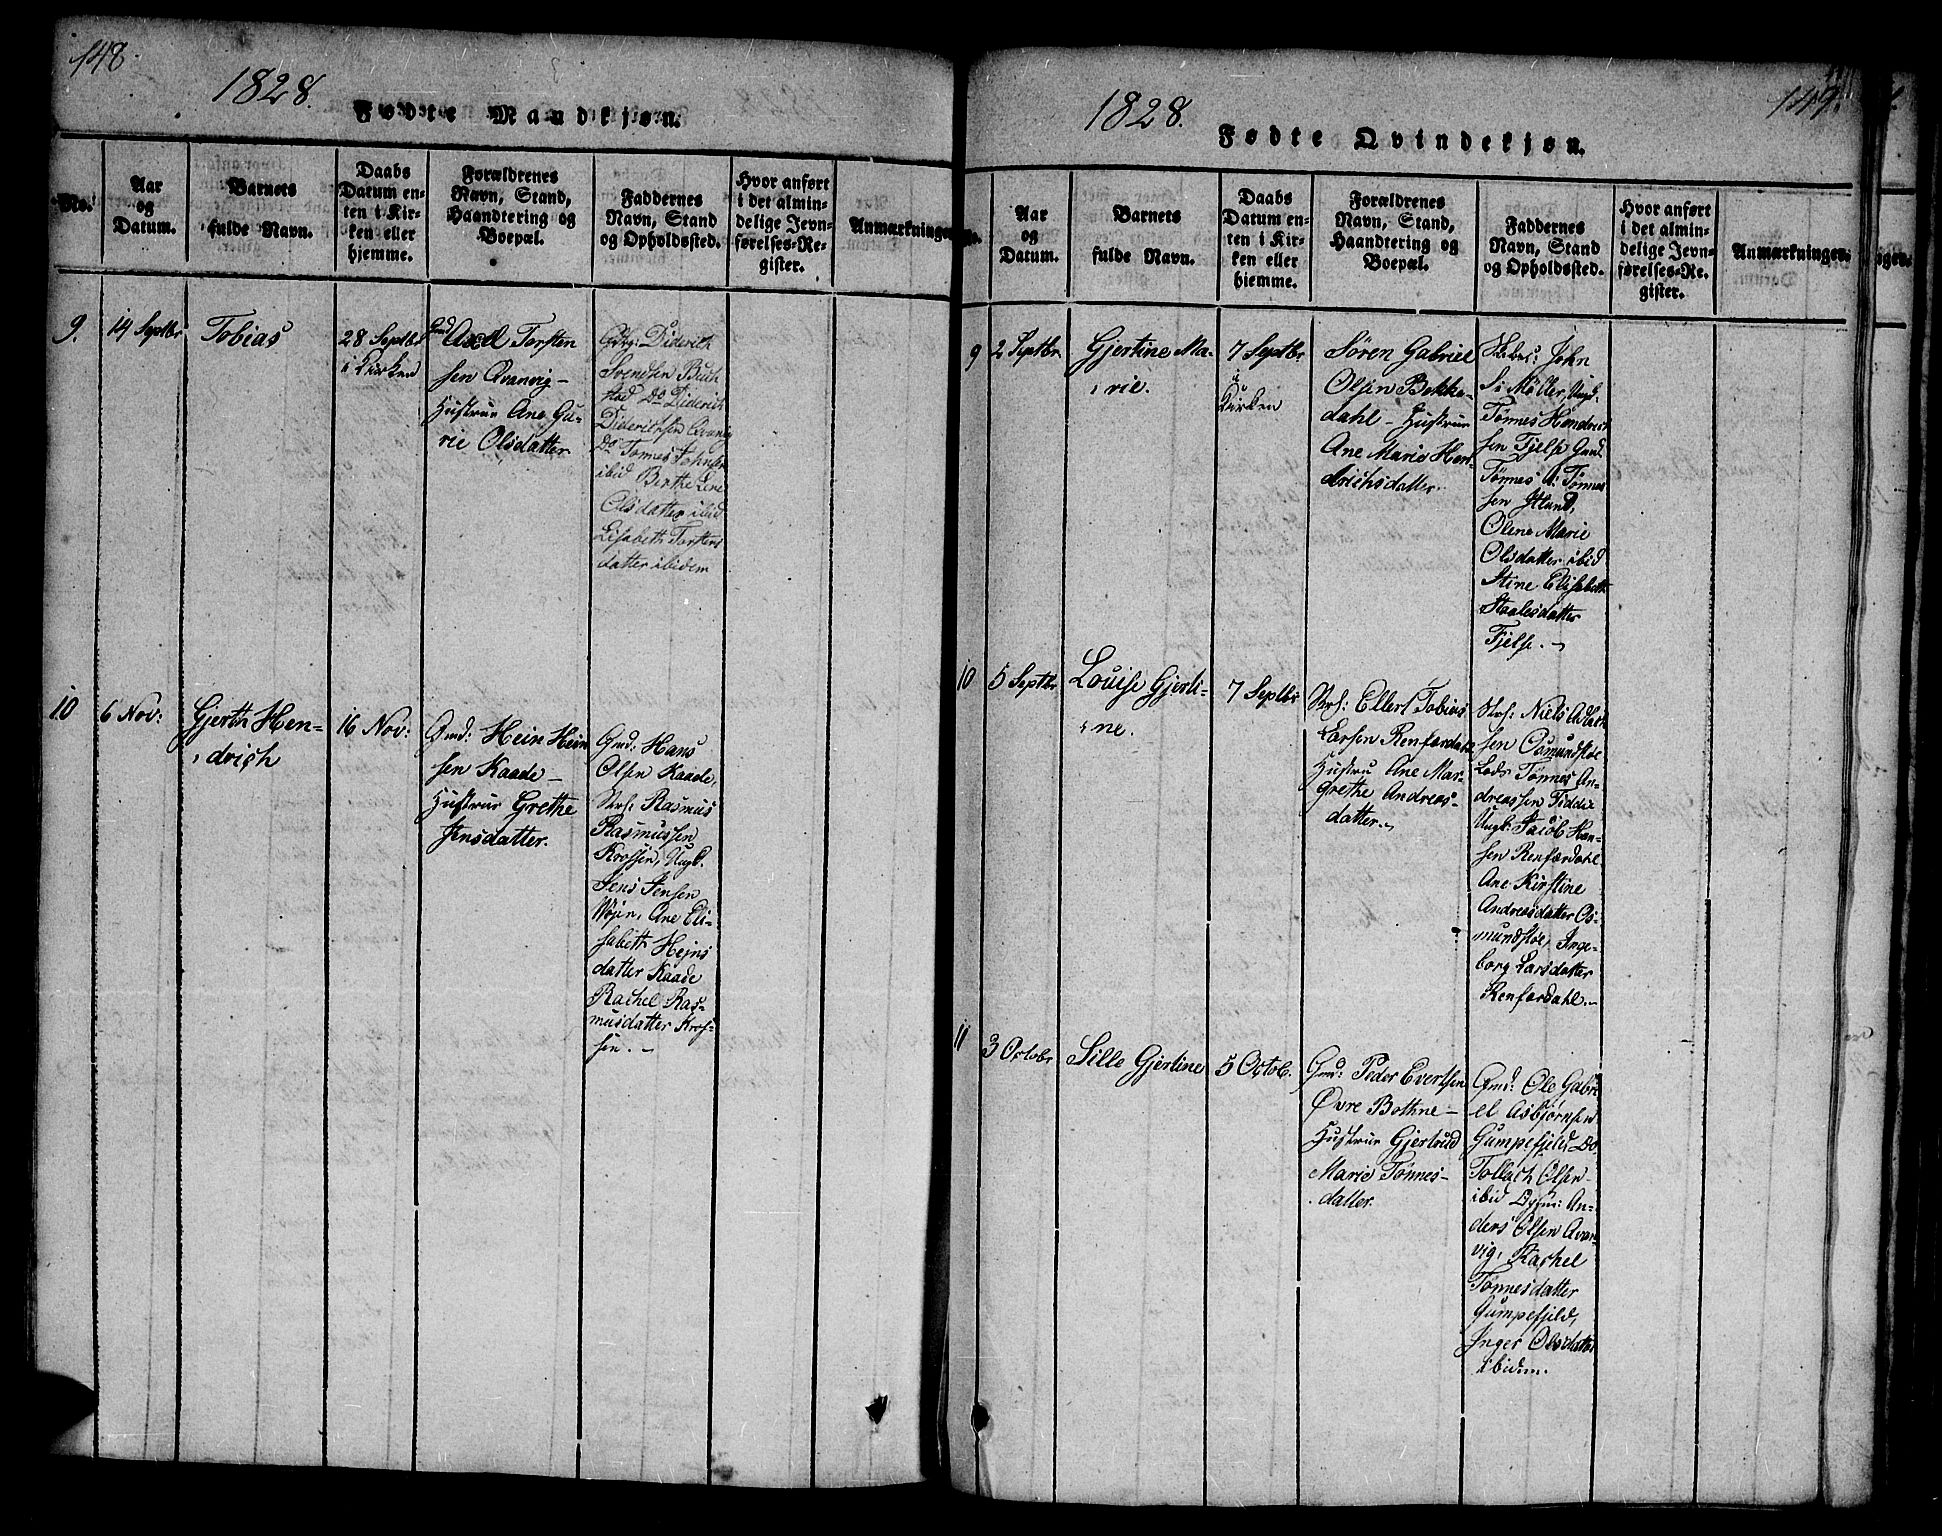 148.
1828.
Fødte Mandkjøn.
No.
Aar
og
Datum.
Barnets
fulde Navn.
Daabs
Datum en-
ten i Kir-
ken eller
hjemme.
Forældrenes
Navn, Stand,
Haandtering og
Boepæl.
Faddernes
Navn, Stand
og Opholdssted.
Hvor anført
i det almin-
delige Jevn-
førelses-Re-
gister.
Anmærkninger
9.
14 Septbr
Tobias
28 Septbr
i Kirken
Gmd Axel Torsten
sen Qvanvig –
Hustrue Ane Gu-
rie Olsdatter
Diderich
Svendsen Buch
stad Do Diderich
Diderichsen Qvanvig
Do Tønnes Johnsen
ibid Berthe Lene
Olsdatter ibid
Elisabeth Torstens
datter ibidem
10
6 Nov:
Gjerth Hen-
drich
16 Nov:
Gmd: Hein Hein
sen Kaade –
Hustrue Grethe
Jensdatter.
Gmd: Hans
Olsen Kaade,
Strs: Rasmus
Rasmussen
Krossen, Ungk.
Jens Jensen
Ane Eli-
sabeth Hejns
datter Kaade
Rachel Ras-
musdatter Kros-
sen. –
1828.
Fødte Qvindekjøn.
149.
No.
Aar
og
Datum.
Barnets
fulde Navn.
Daabs
Datum en-
ten i Kir-
ken eller
hjemme.
Forældrenes
Navn, Stand,
Haandtering og
Boepæl.
Faddernes
Navn, Stand
og Opholdssted.
Hvor anført
i det almin-
delige Jevn-
førelses-Re-
gister.
Anmærkninger.
9
2 Septbr.
Gjertine Ma-
rie.
7 Septbr
i
Kirken
Søren Gabriel
Olsen Bekke-
dahl – Hustrue
Ane Marie Hen-
drichsdatter.
John
S: Møller, Ungk.
Tønnes Hendrich
sen Fjelse Gmd.
Tønnes A: Tønnes
sen
Olene Marie
Olsdatter ibid
Stine Elisabeth
Staalesdatter
Fjelse. –
10
5 Septbr
Louise Gjerti-
ne.
7 Septbr
Strs: Ellert Tobias
Larsen Renfærdahl
Hustru Ane Mar-
grethe Andreas-
datter. –
Strs: Niels Adel
sen Osmundstøe
Lods Tønnes An-
dreassen Fedde
Ungk: Jacob Han-
sen Renfærdahl
Ane Kirstine
Andreasdatter Os-
mundstøe, Inge-
borg Larsdatter
Renfærdahl. –
11
3 Octobr
Sille Gjertine
5 Octob.
Gmd: Peder Evertsen
Øvre Bothne –
Hustrue Gjertrud
Marie Tønnes-
datter.
Gmd: Ole Gabri
el Asbjørnsen
Gumpefjeld, Do
Tollach Olsen
ibid An-
ders Olsen Qvan-
vig, Rachel
Tønnesdatter
Gumpefjeld,
Inger Olsdatter
ibidem.